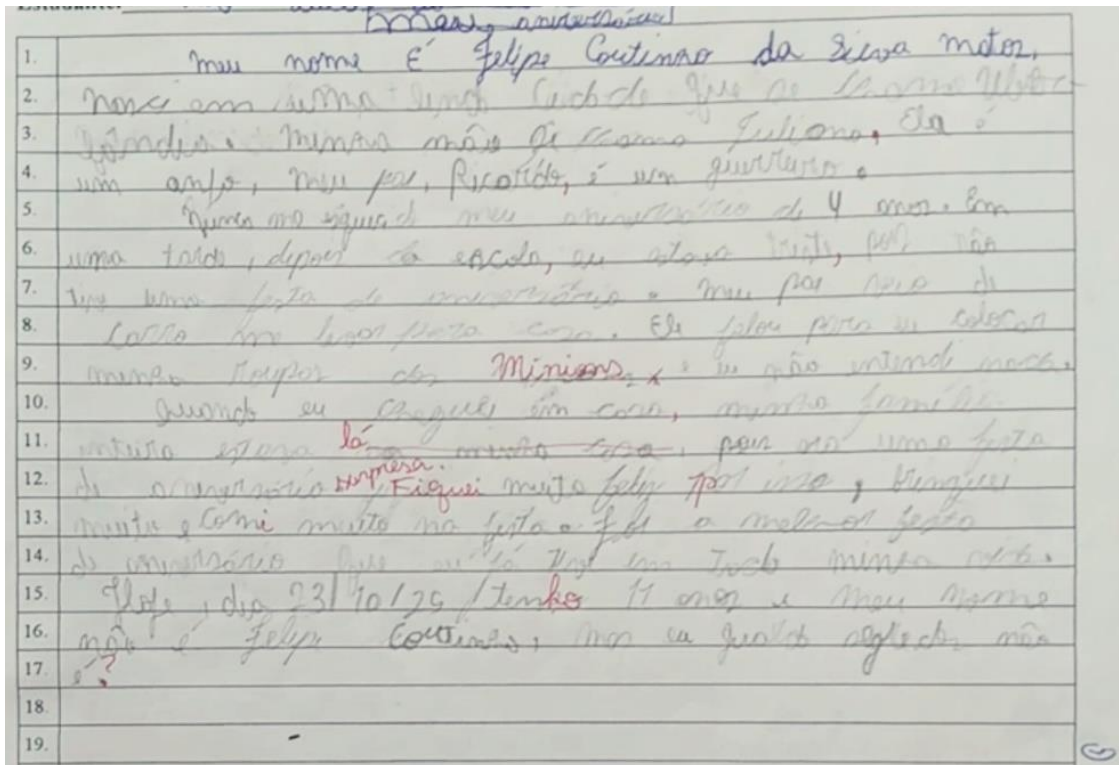 aniversário
1. Meu nome É Felipe Coutinho da Silva matos,
2. em uma linda que se chama
3. minha mãe se chama Juliana, Ela é
4. um anjo, meu pai, Ricardo, é um guerreiro.
5. Nunca me meu aniversário de 4 anos. Em
6. uma tarde, depois da escola, eu estava triste, pois não
7. tive uma festa de aniversário. meu pai de
8. carro me para casa. Ele falou para eu colocar
9. minha roupa dos Minions, e eu não entendi nada.
10. Quando eu cheguei em casa, minha família
11. inteira estava lá minha casa, pois era uma festa
12. de aniversário surpresa. Fiquei muito feliz por isso, brinquei
13. muito e comi muito na festa. foi a melhor festa
14. de aniversário que eu já tive em toda minha vida.
15. Hoje, dia 23/10/25, tenho 11 anos e meu nome
16. não é Felipe Coutinho, mas eu não
17. é?
18.
19.